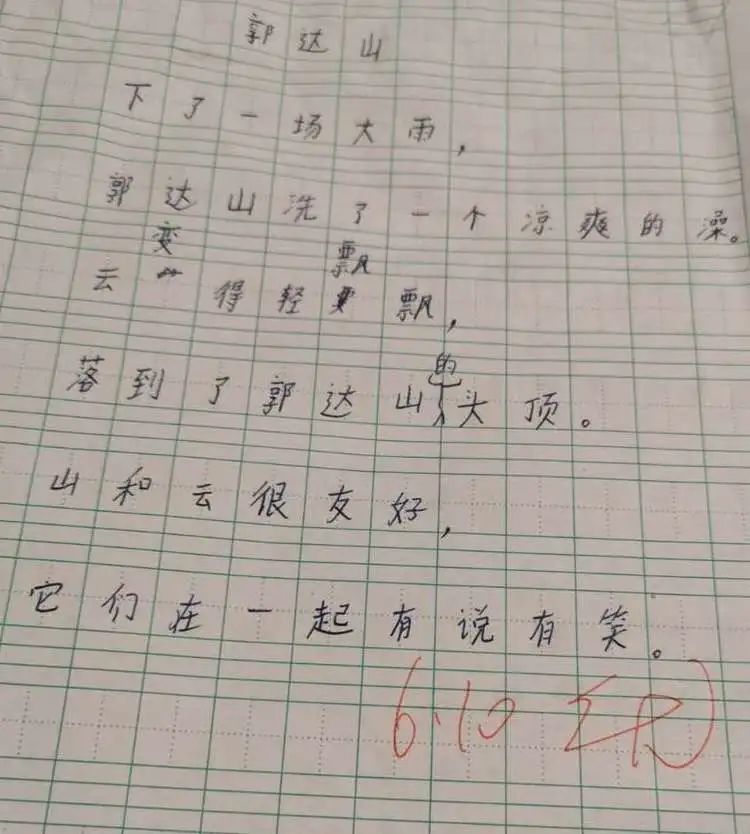 郭达山
下了一场大雨，
郭达山洗了一个凉爽的澡。
云变得轻飘飘，
落到了郭达山的头顶。
山和云很友好，
它们在一起有说有笑。
6.10